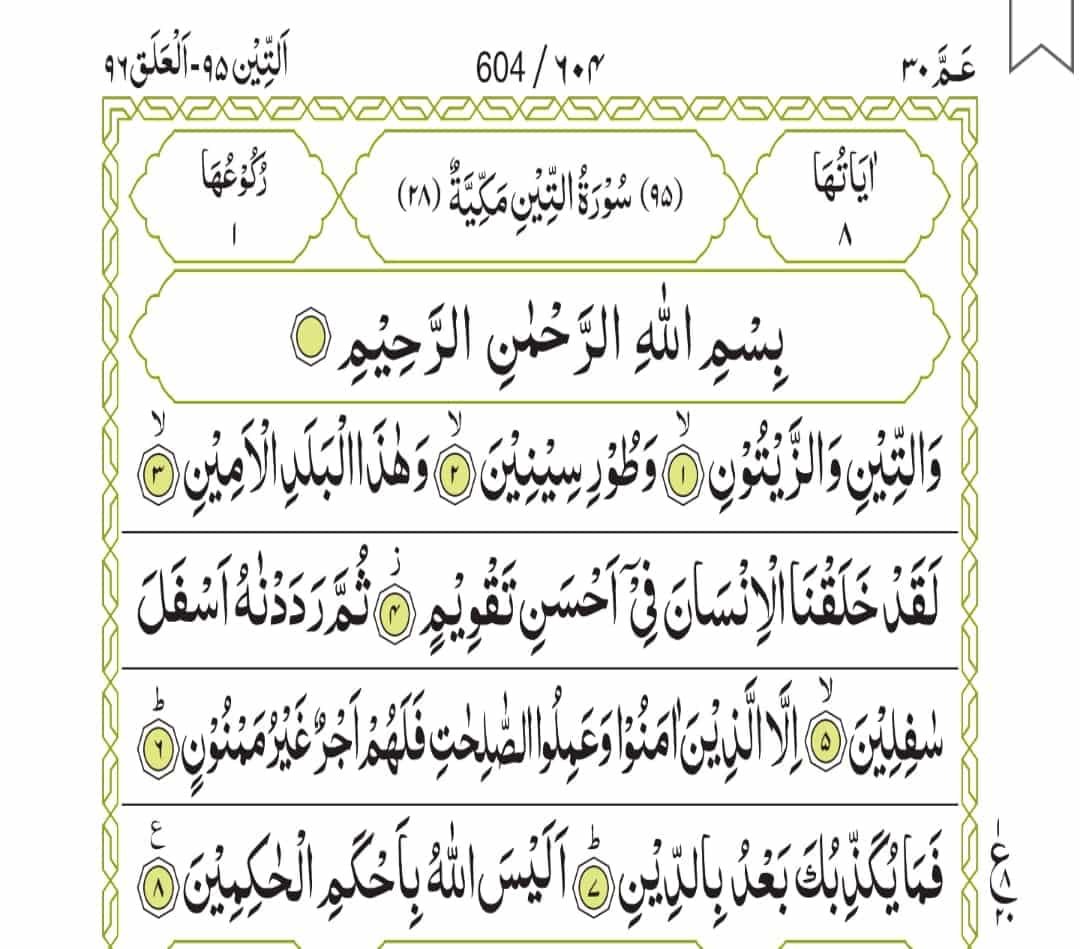 عَمَّ ٣٠
604 / ٦٠۴
اَلتِّيْن ٩۵-اَلْعَلَق ٩٦
اٰيَاتُهَا
٨
(٩۵) سُوْرَةُ التِّيْنِ مَكِّيَّةٌ (٢٨)
رُكُوْعُهَا
١
بِسْمِ اللّٰهِ الرَّحْمٰنِ الرَّحِيْمِ
وَالتِّيْنِ وَالزَّيْتُوْنِ ۙ ١ وَطُوْرِ سِيْنِيْنَ ۙ ٢ وَهٰذَا الْبَلَدِ الْاَمِيْنِ ۙ ٣
لَقَدْ خَلَقْنَا الْاِنْسَانَ فِيْۤ اَحْسَنِ تَقْوِيْمٍ ز ۴ ثُمَّ رَدَدْنٰهُ اَسْفَلَ
سٰفِلِيْنَ ۙ ۵ اِلَّا الَّذِيْنَ اٰمَنُوْا وَعَمِلُوا الصّٰلِحٰتِ فَلَهُمْ اَجْرٌ غَيْرُ مَمْنُوْنٍ ؕ ٦
فَمَا يُكَذِّبُكَ بَعْدُ بِالدِّيْنِ ؕ ٧ اَلَيْسَ اللّٰهُ بِاَحْكَمِ الْحٰكِمِيْنَ ع ٨
١
ع
٨
٢٠